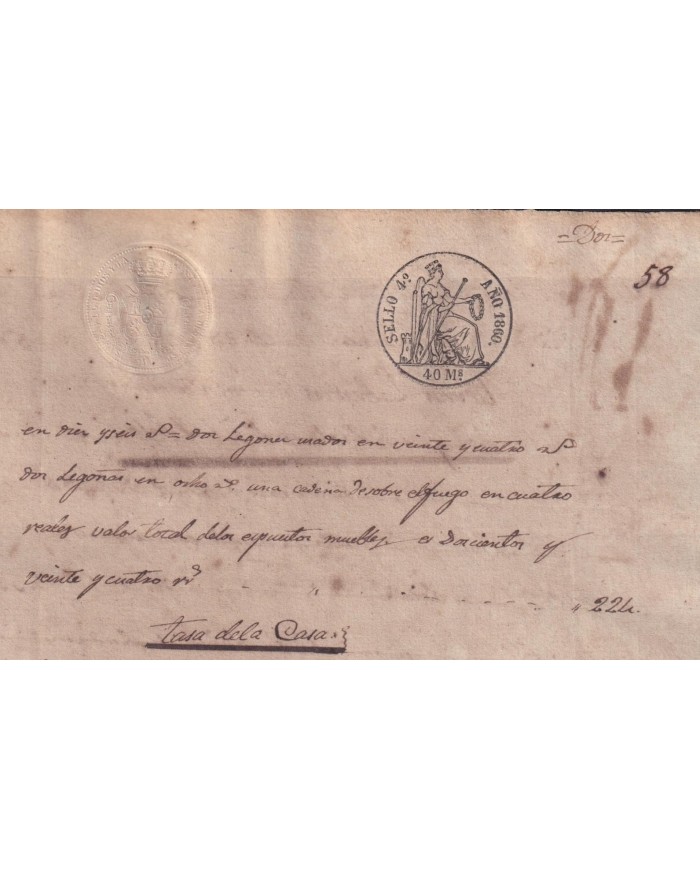 =Dos=
58
SELLO 4º AÑO 1860.
40 Ms
en diez y seis rs = dos Legones usados en veinte y cuatro rs
dos Legoñas en ocho rs una cadena de sobre el fuego en cuatro
reales valor total delos expuestos muebles Doscientos y
veinte y cuatro rs " 224.
tasa dela Casa.